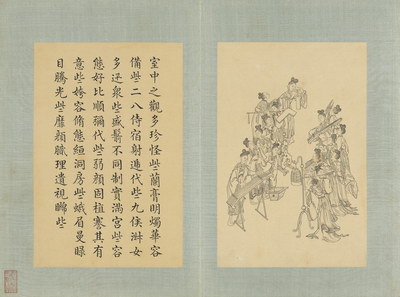 室中之觀多珍怪些蘭膏明燭華容
備些二八侍宿射遞代些九侯淑女
多迅衆些盛鬋不同制實滿宮些容
態好比順彌代些弱顏固植謇其有
意些姱容脩態絙洞房些蛾眉曼睩
目騰光些靡顏膩理遺視矊些